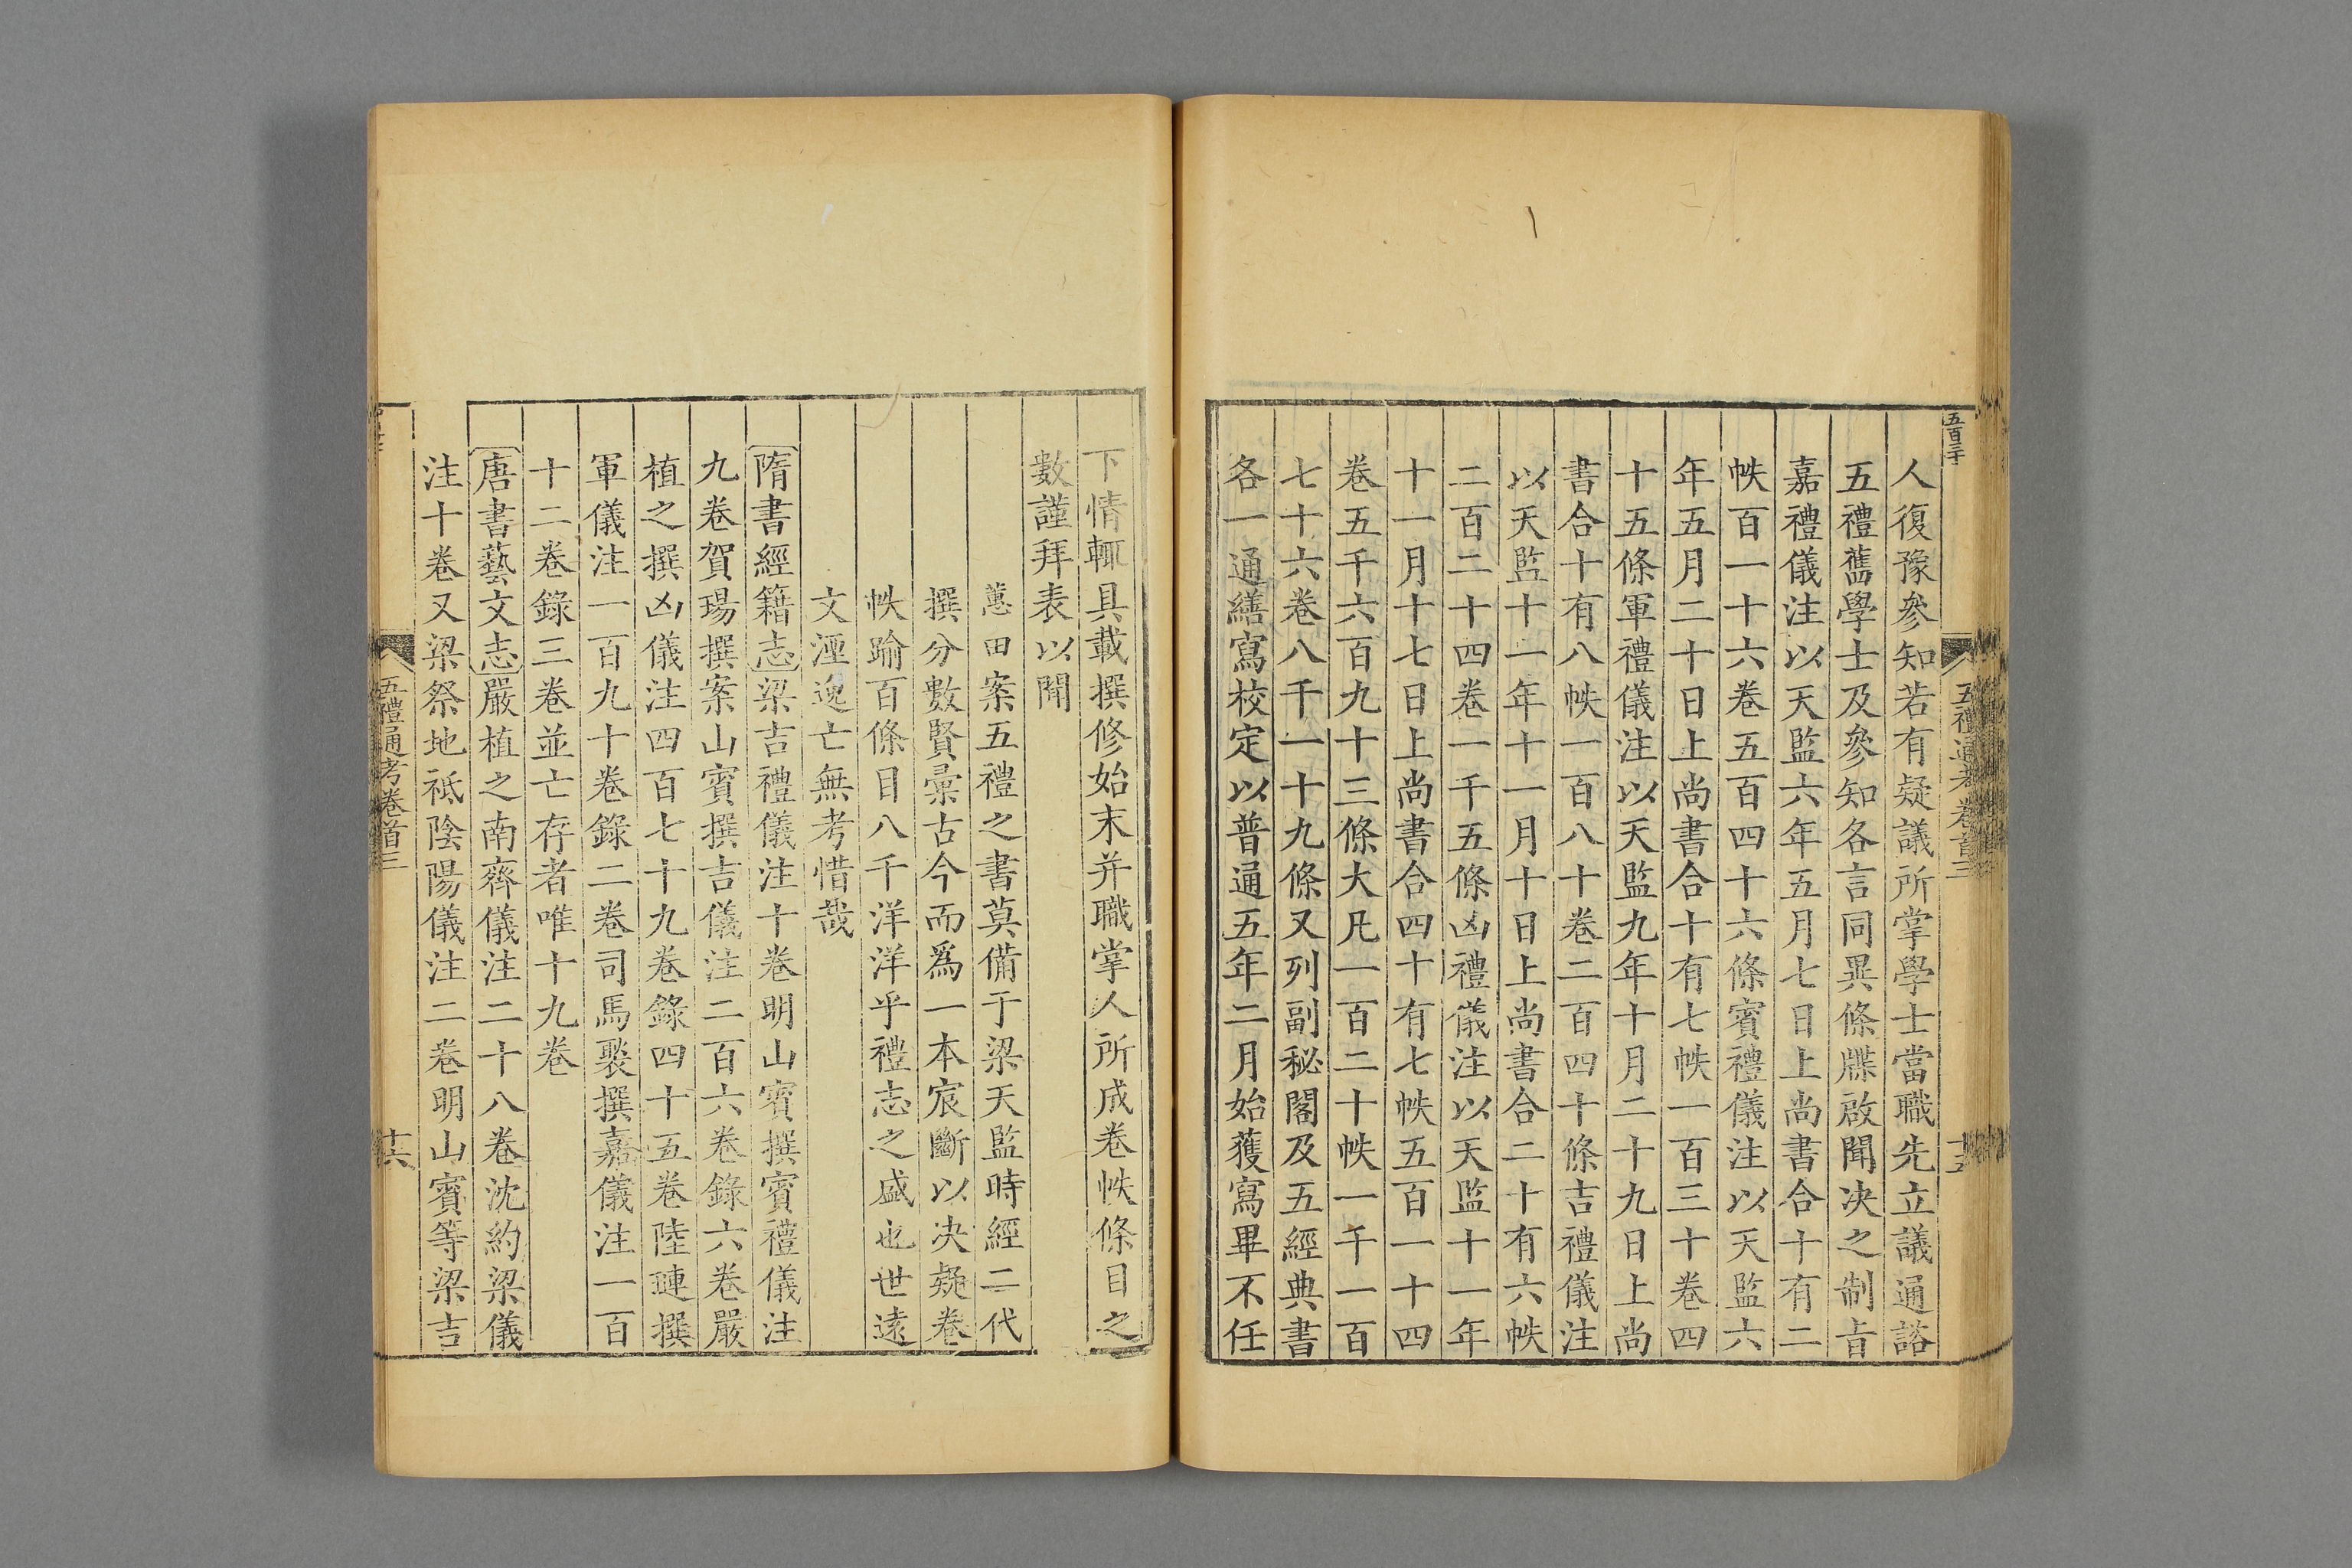 人復豫參知若有疑議所掌學士當職先立議通諮
五禮舊學士及參知各言同異條牒啟聞決之制旨
嘉禮儀注以天監六年五月七日上尚書合十有二
帙百一十六卷五百四十六條賓禮儀注以天監六
年五月二十日上尚書合十有七帙一百三十卷四
十五條軍禮儀注以天監九年十月二十九日上尚
書合十有八帙一百八十卷二百四十條吉禮儀注
以天監十一年十一月十日上尚書合二十有六帙
二百二十四卷一千五條凶禮儀注以天監十一年
十一月十七日上尚書合四十有七帙五百一十四
卷五千六百九十三條大凡一百二十帙一千一百
七十六卷八千一十九條又列副秘閣及五經典書
各一通繕寫校定以普通五年二月始獲寫畢不任
五禮通考卷首三
下情輒具載撰修始末并職掌人所成卷帙條目之
數謹拜表以聞
蕙田案五禮之書莫備于梁天監時經二代
撰分數賢彙古今而爲一本宸斷以決疑卷
帙踰百條目八千洋洋乎禮志之盛也世遠
文湮逸亡無考惜哉
隋書經籍志梁吉禮儀注十卷明山賓撰賓禮儀注
九卷賀瑒撰案山賓撰吉儀注二百六卷錄六卷嚴
植之撰凶儀注四百七十九卷錄四十五卷陸璉撰
軍儀注一百九十卷錄二卷司馬褧撰嘉儀注一百
十二卷錄三卷並亡存者唯十九卷
唐書藝文志嚴植之南齊儀注二十八卷沈約梁儀
注十卷又梁祭地祇陰陽儀注二卷明山賓等梁吉
五禮通考卷首三
十六